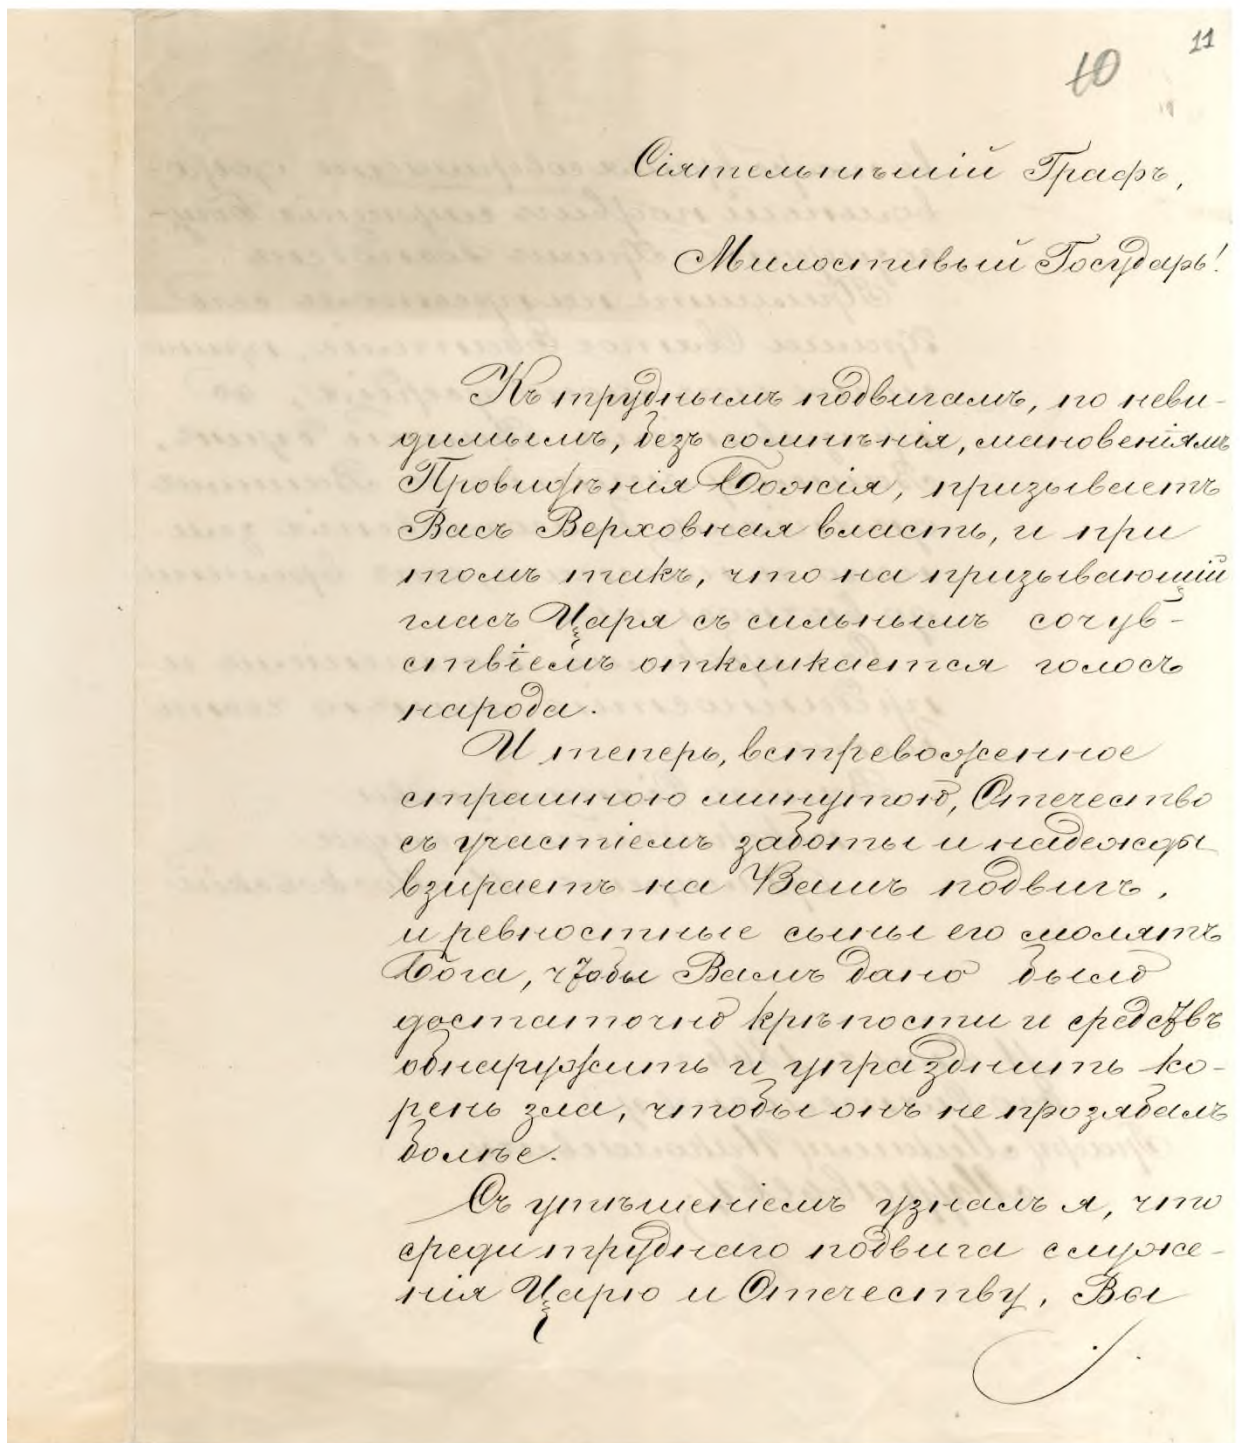 11
10
Сіятельнѣйшій Графъ,
Милостивый Государь!
Къ труднымъ подвигамъ, по неви-
димымъ, безъ сомнѣнія, мановеніямъ
Провидѣнія Божія, призываетъ
Васъ Верховная власть, и при
томъ такъ, что на призывающій
гласъ Царя съ сильнымъ сочув-
ствіемъ откликается голосъ
народа.
И теперь, встревоженное
страшною минутою, Отечество
съ участіемъ заботы и надежды
взираетъ на Вашъ подвигъ,
и ревностные сыны его молятъ
Бога, чтобы Вамъ дано было
достаточно крѣпости и средствъ
обнаружить и упразднить ко-
рень зла, чтобы онъ не прозябалъ
болѣе.
Съ утѣшеніемъ узналъ я, что
среди труднаго подвига служе-
нія Царю и Отечеству, Вы